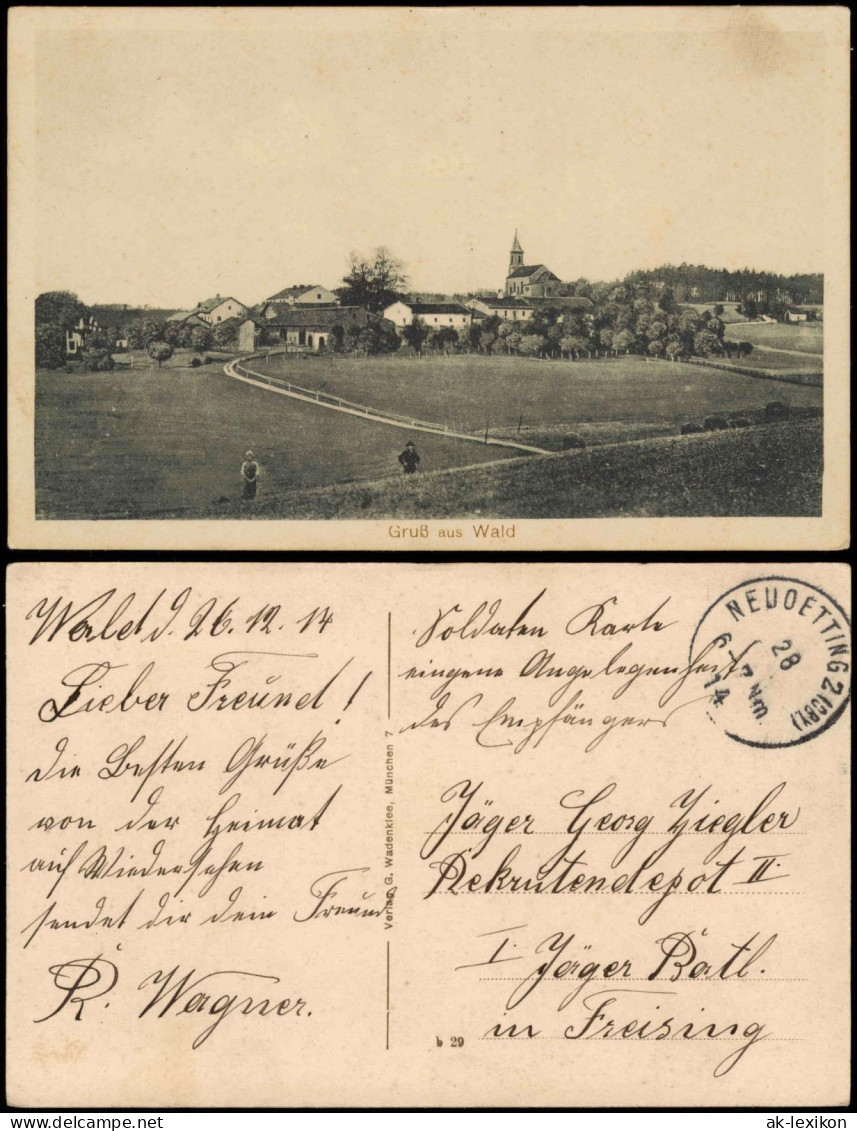 Gruß aus Wald
Wald d. 26.12.14
Lieber Freund!
die Besten Grüße
von der Heimat
auf Wiedersehen
sendet dir dein Freund
R. Wagner.
Verlag G. Wadenklee, München 7
Soldaten Karte
eingene Angelegenheit
des Empfängers
NEUOETTING 2 (OBY.)
28
6-7 Nm
14
Jäger Georg Ziegler
Rekrutendepot II.
I. Jäger Batl.
in Freising
b 29
ak-lexikon
ak-lexikon.com